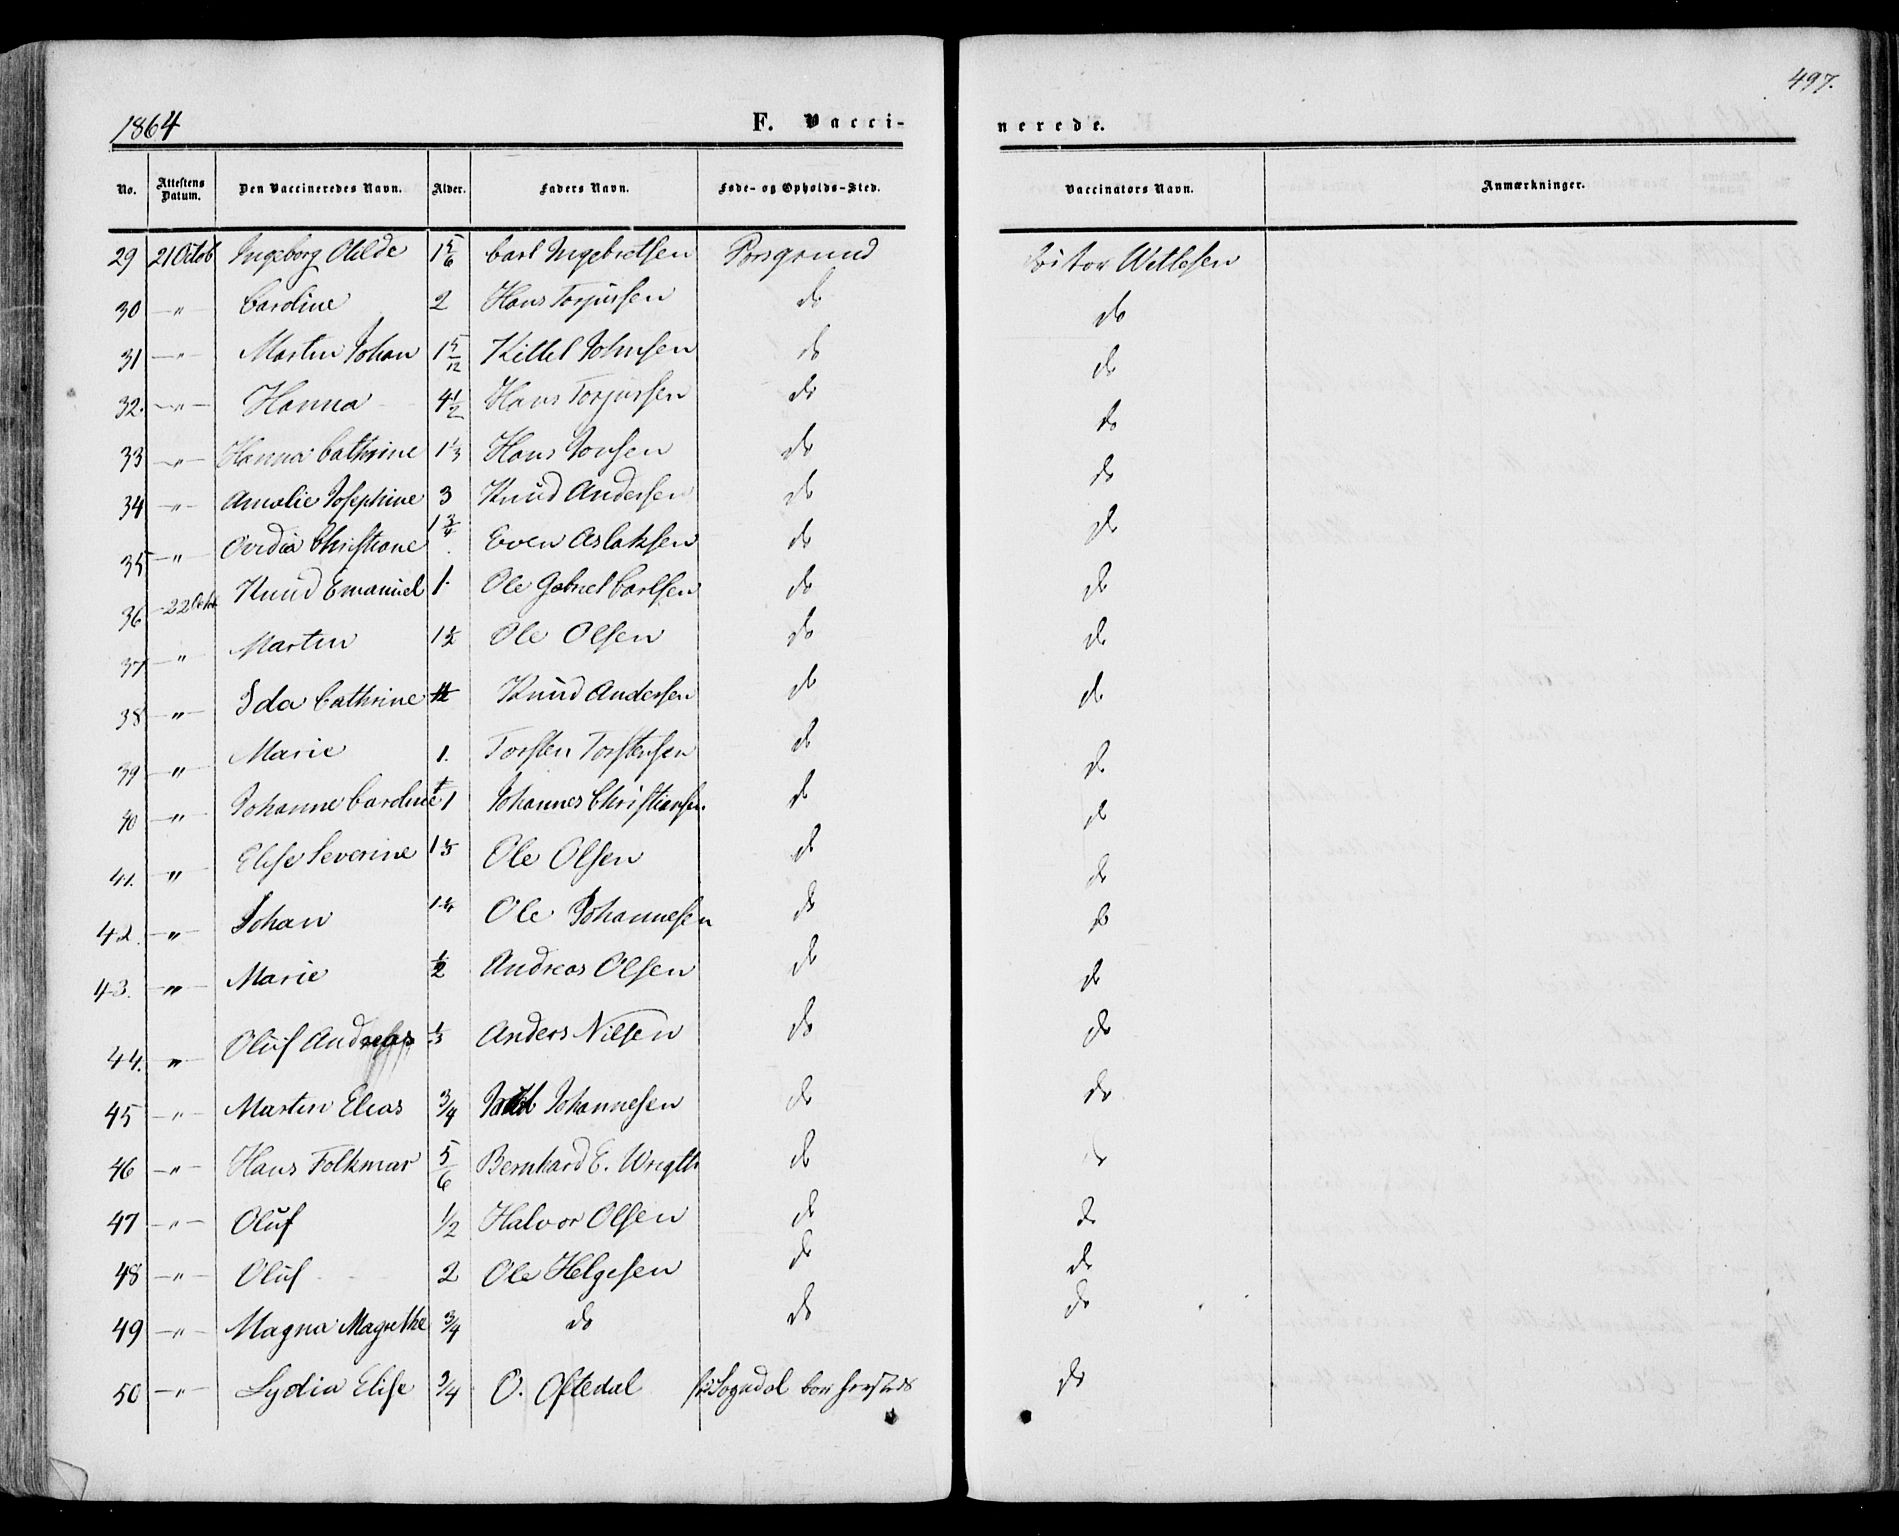 497.
1864 F. Vacci- nerede.
No. Attestens Datum. Den Vaccineredes Navn. Alder. Faders Navn. Føde- og Opholds-Sted. Vaccinators Navn. Anmærkninger.
29 21 Octob Ingeborg Otilde 1 5/6 Carl Ingebretsen Porsgrund Wetlesen
30 " Caroline 2 Hans Torjussen do do
31 " Martin Johan 1 5/12 Kittel Johnsen do do
32. " Hanna 4 1/2 Hans Torjussen do do
33 " Hanna Cathrine 1 1/3 Hans Jonsen do do
34 " Amalie Josephine 3 Knud Andersen do do
35 " Ovedia Christiane 1 3/4 Even Aslaksen do do
36 22 Octob Knud Emanuel 1 Ole Gabriel Carlsen do do
37 " Martin 1 1/2 Ole Olsen do do
38 " Ida Cathrine Knud Andersen do do
39 " Marie 1. Torsten Torstensen do do
40 " Johanne Caroline 1 Johannes Christiansen do do
41. " Elise Severine Ole Olsen do do
42. " Johan Ole Johannesen do do
43. " Marie 1/2 Andreas Olsen do do
44. " Oluf Andreas 1/3 Anders Nilsen do do
45 " Martin Elias 3/4 Johannesen do do
46 " Hans Folkmar 5/6 Bernhard E. Wrigth do do
47 " Oluf 1/2 Halvor Olsen do do
48 " Oluf 2 Ole Helgesen do do
49 " Magna Magrethe 3/4 do do do
50 " Lydia Elise 3/4 O. Oftedal Sogndal do